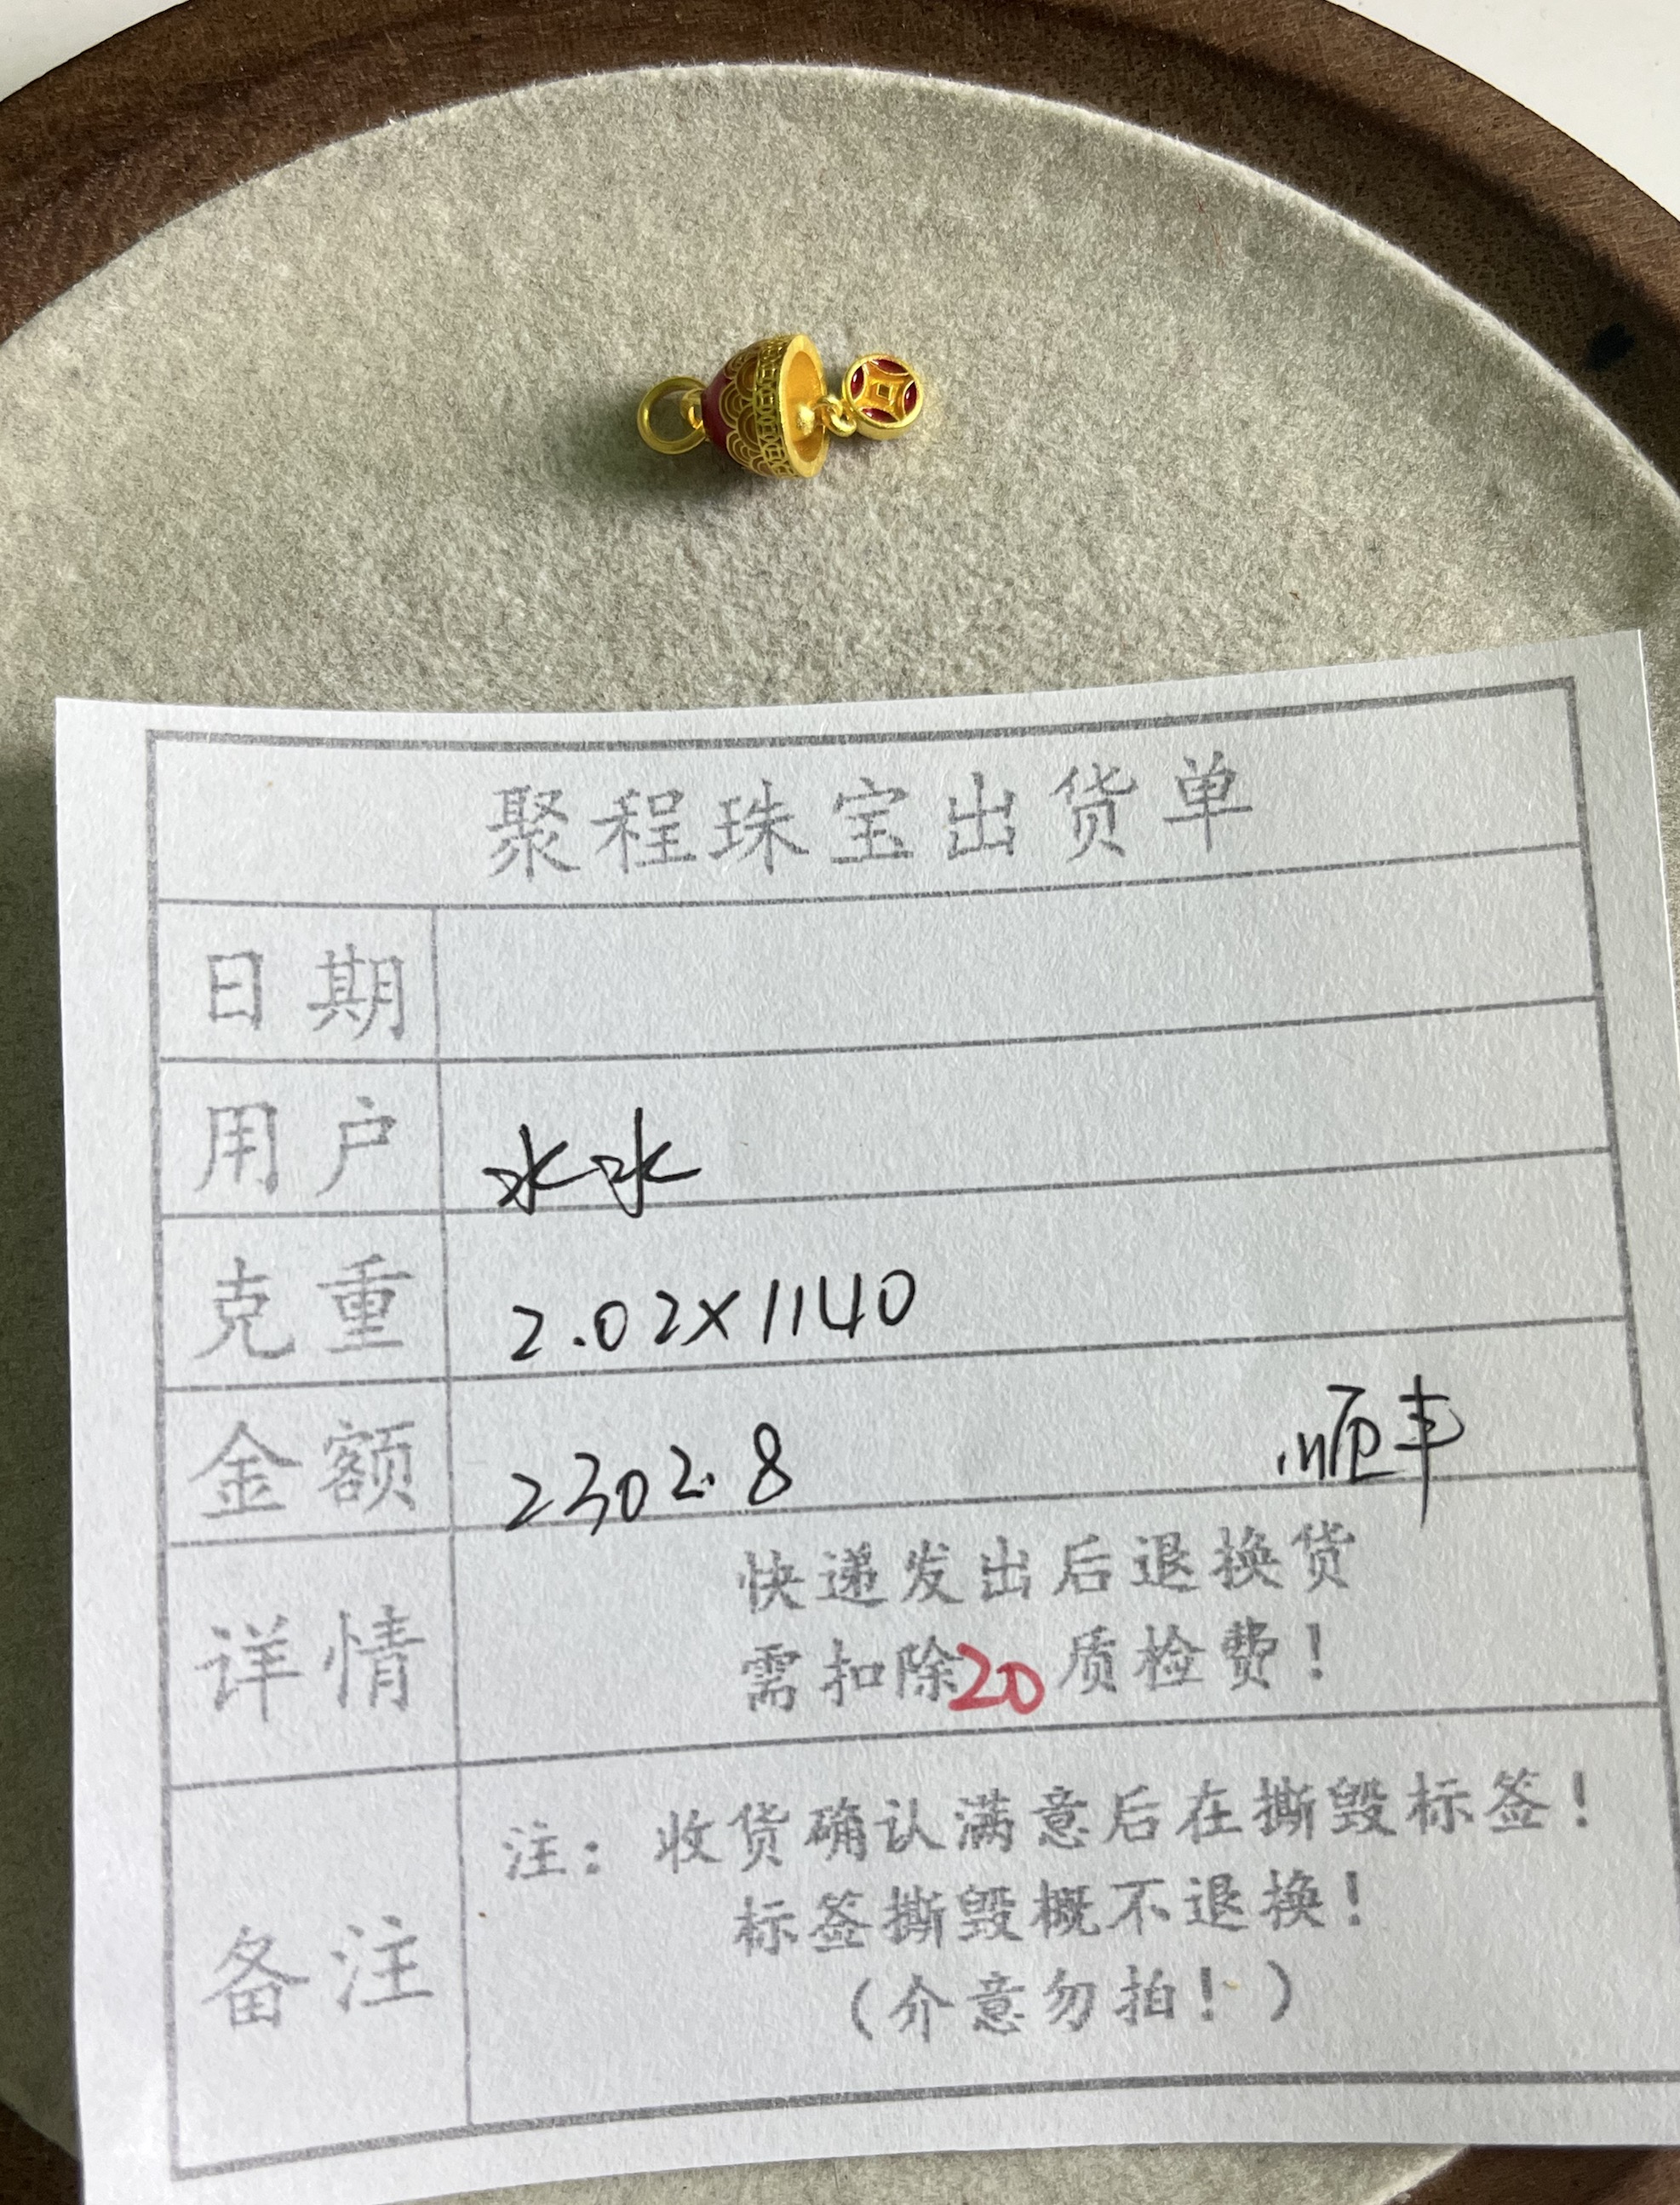 聚程珠宝出货单
日期
用户 水水
克重 2.02×1140
金额 2302.8 顺丰
详情 快递发出后退换货
需扣除20质检费！
备注 注：收货确认满意后在撕毁标签！
标签撕毁概不退换！
（介意勿拍！）